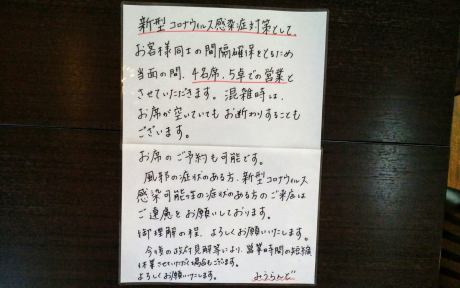 新型コロナウィルス感染症対策として、
お客様同士の間隔確保をとるため
当面の間、4名席、5卓での営業と
させていただきます。混雑時は、
お席が空いていてもお断わりすることも
ございます。
お席のご予約も可能です。
風邪の症状のある方、新型コロナウィルス
感染可能性の症状のある方のご来店は
ご遠慮をお願いしております。
御理解の程、よろしくお願いいたします。
今後の政府見解等により、営業時間の短縮
休業させていただく場合もございます。
よろしくお願いいたします。
みうらんど